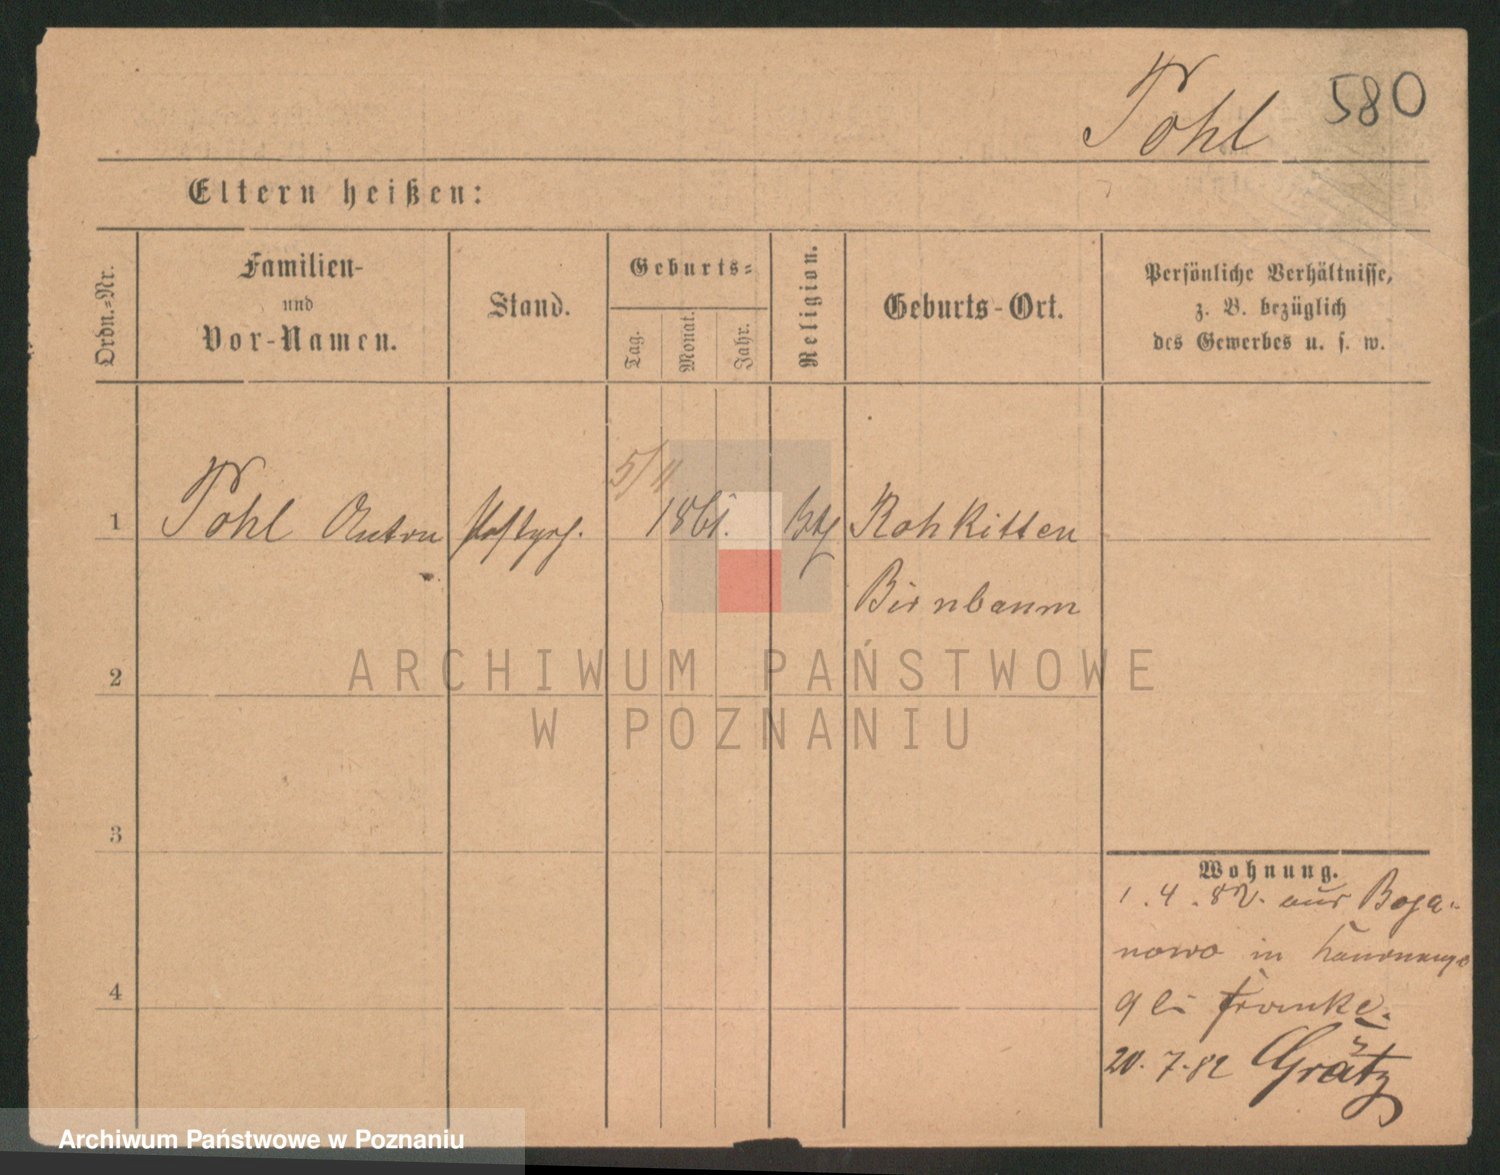 Pohl 580
Eltern heißen:
Ordn.-Nr.
Familien-
und
Vor-Namen.
Stand.
Geburts-
Tag.
Monat.
Jahr.
Religion.
Geburts-Ort.
Persönliche Verhältnisse,
z. B. bezüglich
des Gewerbes u. s. w.
5/11
1 Pohl Anton 1861. Kth Rohkitten
Birnbaum
2
3
4
Wohnung.
1.4.82. aus Boga-
nowo in
9 bei Franke.
20.7.82 Grätz
ARCHIWUM PAŃSTWOWE
W POZNANIU
Archiwum Państwowe w Poznaniu